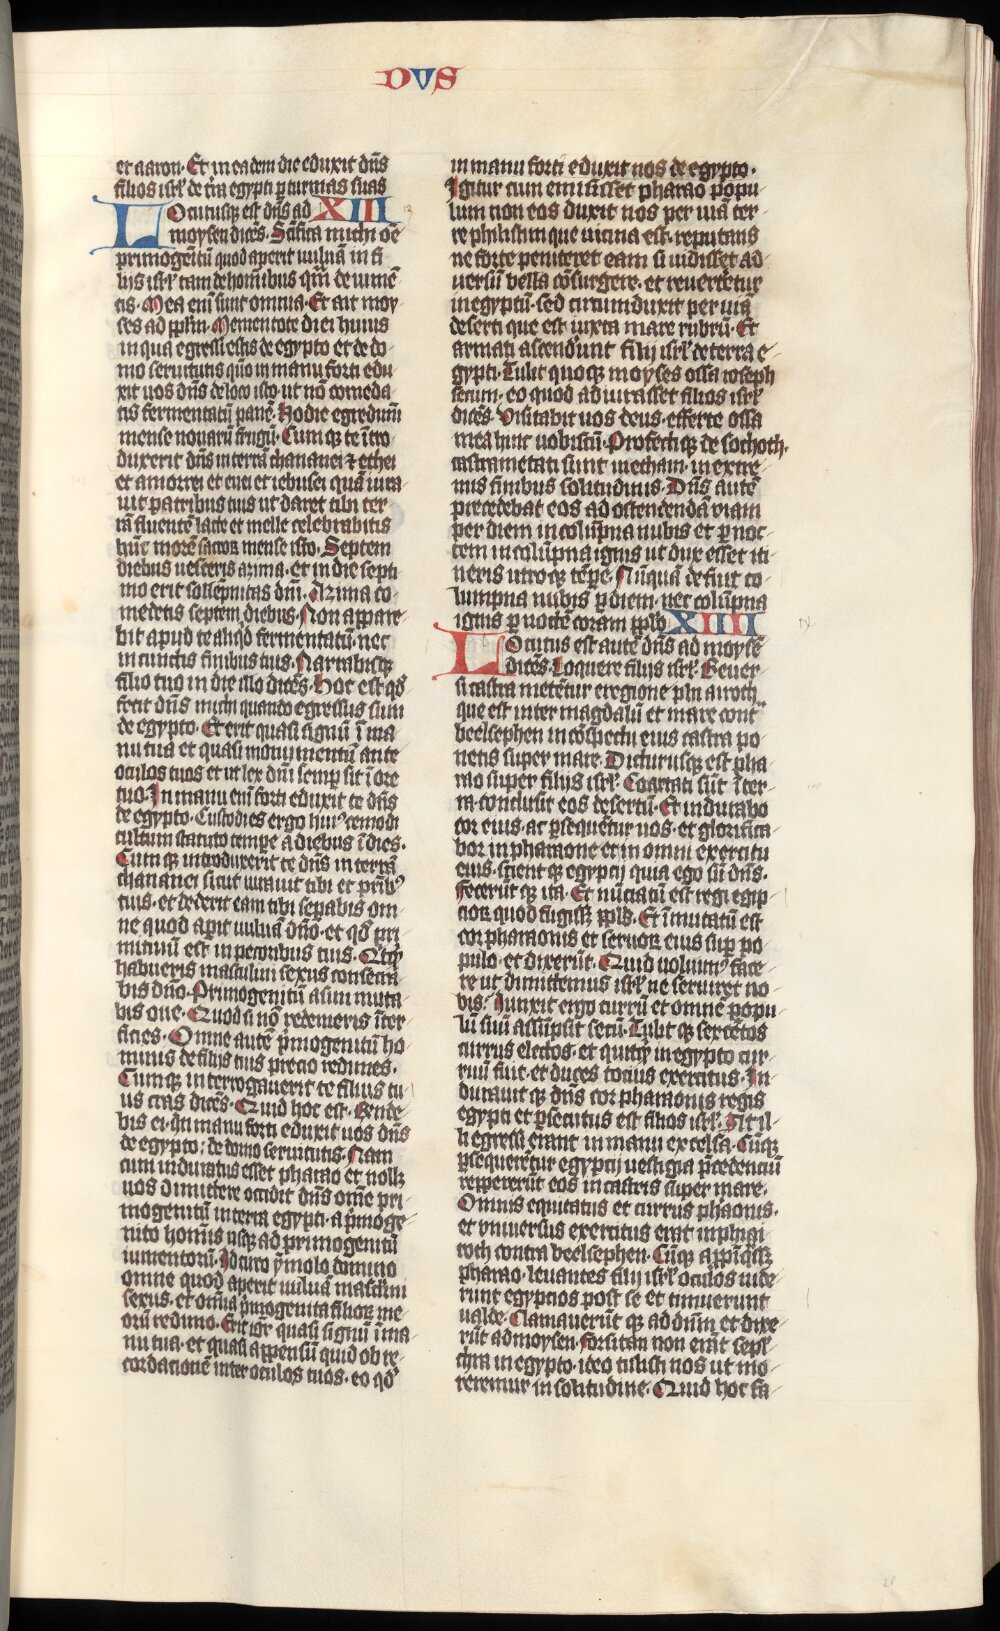 DVS
et aaron. Et in eadem die eduxit dn̄s
filios isrl' de t̄ra egypti ꝑ turmas suas
Locutusqꝫ est dn̄s ad XIII 13
moysen dicēs. Sc̄ifica michi oē
primogēitū quod aperit vuluā in fi
liis isrl' tam de hom̄ibus qm̄ de iumē
tis. Mea enī sunt omnia. Et ait moy
ses ad ppl̄m. Mementote diei huius
in qua egressi estis de egypto et de do
mo seruitutis qm̄ in manu forti edu
xit uos dn̄s de loco isto. ut nō comeda
tis fermentatū panē. Hodie egredimī
mense nouarū frugū. Cum qꝫ te ītro
duxerit dn̄s in terrā chananei ⁊ ethei
et amorrei et euei et iebusei quā iura
uit patribus tuis ut daret tibi ter
rā fluentē lacte et melle celebrabitis
hūc morē sacroꝝ mense isto. Septem
diebus uesceris azima. et in die septi
mo erit sollēpnitas dn̄i. Azima co
medetis septem diebus. Non appare
bit apud te aliqd fermentatū. nec
in cunctis finibus tuis. Narrabisqꝫ
filio tuo in die illo dicēs. Hoc est qđ
fecit dn̄s michi quando egressus sum
de egypto. Et erit quasi signū ī ma
nu tua et quasi monymentū ante
oculos tuos et ut lex dn̄i semꝑ sit ī ore
tuo. In manu enī forti eduxit te dn̄s
de egypto. Custodies ergo huiꝰcemodi
cultum statuto tempe a diebus ī dies.
Cum qꝫ introduxerit te dn̄s in terrā
chananei sicut iurauit tibi et prībꝰ
tuis. et dederit eam tibi sepabis om
ne quod apit uuluā dn̄o. et qđ pri
mitiuū est in pecoribus tuis. Qͥcqͥd
habueris masculini sexus consecra
bis dn̄o. Primogenitū asini muta
bis oue. Quod si nō redemeris īter
ficies. Omne autē p̄mogenitū ho
minis de filiis tuis precio redimes.
Cumqꝫ interrogauerit te filius tu
us cras dicēs. Quid hoc est. Rende
bis ei. In manu forti eduxit uos dn̄s
de egypto: de domo seruitutis. Nam
cum induratus esset pharao et nollꝫ
uos dimittere occidit dn̄s om̄e pri
mogenitū in terra egypti. a p̄moge
nito hom̄is usqꝫ ad primogenitū
iumentorū. Idcirco ymolo domino
omne quod aperit uuluā masclīni
sexus. et om̄ia p̄mogenita filioꝝ me
orū redimo. Erit igr̄ quasi signū ī ma
nu tua. et quasi appensū quid ob re
cordationē inter oculos tuos. eo qđ
in manu forti eduxit nos de egypto.
Igitur cum emisisset pharao popu
lum non eos duxit nos per uiā ter
re philistim que uicina est. reputans
ne forte peniteret eam si uidisset ad
uersū bella cōsurgere. et reuertetur
in egyptū. sed circumduxit per uiā
deserti que est iuxta mare rubrū. Et
armati ascenderunt filii isrl' de terra e
gypti. Tulit quoqꝫ moyses ossa ioseph
secum. eo quod adiurasset filios isrl'
dicēs. Visitabit uos deus. efferte ossa
mea hinc uobiscū. Profectiqꝫ de sochoth.
castrametati sunt in etham. in extre
mis finibus solitudinis. Dn̄s autē
precedebat eos ad ostendendā uiam
per diem in colūpna nubis et ꝑ noc
tem in colūpna ignis ut dux esset iti
neris utroqꝫ tēpe. Nūquā defuit co
lumpna nubis ꝑ diem. nec colūpna
ignis ꝑ noctē coram pplo XIIII
Locutus est autē dn̄s ad moysē
dicēs. Loquere filiis isrl'. Reuer
si castra metētur e regione phi airoth
que est inter magdalū et mare contͣ
beelsephen in cōspectu eius castra po
netis super mare. Dicturusqꝫ est pha
rao super filiis isrl'. Coartati sūt ī ter
ra. conclusit eos desertū. Et indurabo
cor eius. ac ꝑsequētur uos. et glorifica
bor in pharaone et in omni exercitu
eius. scient qꝫ egyptii quia ego sū dn̄s.
Fecerūt qꝫ ita. Et nūciatū est regi egip
cioꝝ quod fugissꝫ ppls. Et īmutatū est
cor pharaonis et seruoꝝ eius suꝑ po
pulo. et dixerūt. Quid uoluimꝰ face
re ut dimittemus isrl' ne seruiret no
bis. Iunxit ergo currū et omnē popu
lū suū assūpsit secū. Tulit qꝫ sexcētos
currus electos. et quicqͥd in egypto cur
ruū fuit. et duces totius exercitus. In
durauit qꝫ dn̄s cor pharaonis regis
egypti et ꝑsecutus est filios isrl'. At il
li egressi erant in manu excelsa. Cūqꝫ
ꝑsequerētur egyptii uestigia p̄cedenciū
reppererūt eos in castris super mare.
Omnis equitatus et currus phaonis.
et yniuersus exercitus erat in phyai
roth contra beelsephen. Cūqꝫ appīqͣssꝫ
pharao. leuantes filii isrl' oculos uide
runt egyptios post se et timuerunt
ualde. Clamauerūt qꝫ ad dn̄m et dixe
rūt ad moysen. Forsitan non erāt sepl'
chra in egypto. ideo tulisti nos ut mo
reremur in solitudine. Quid hoc fa